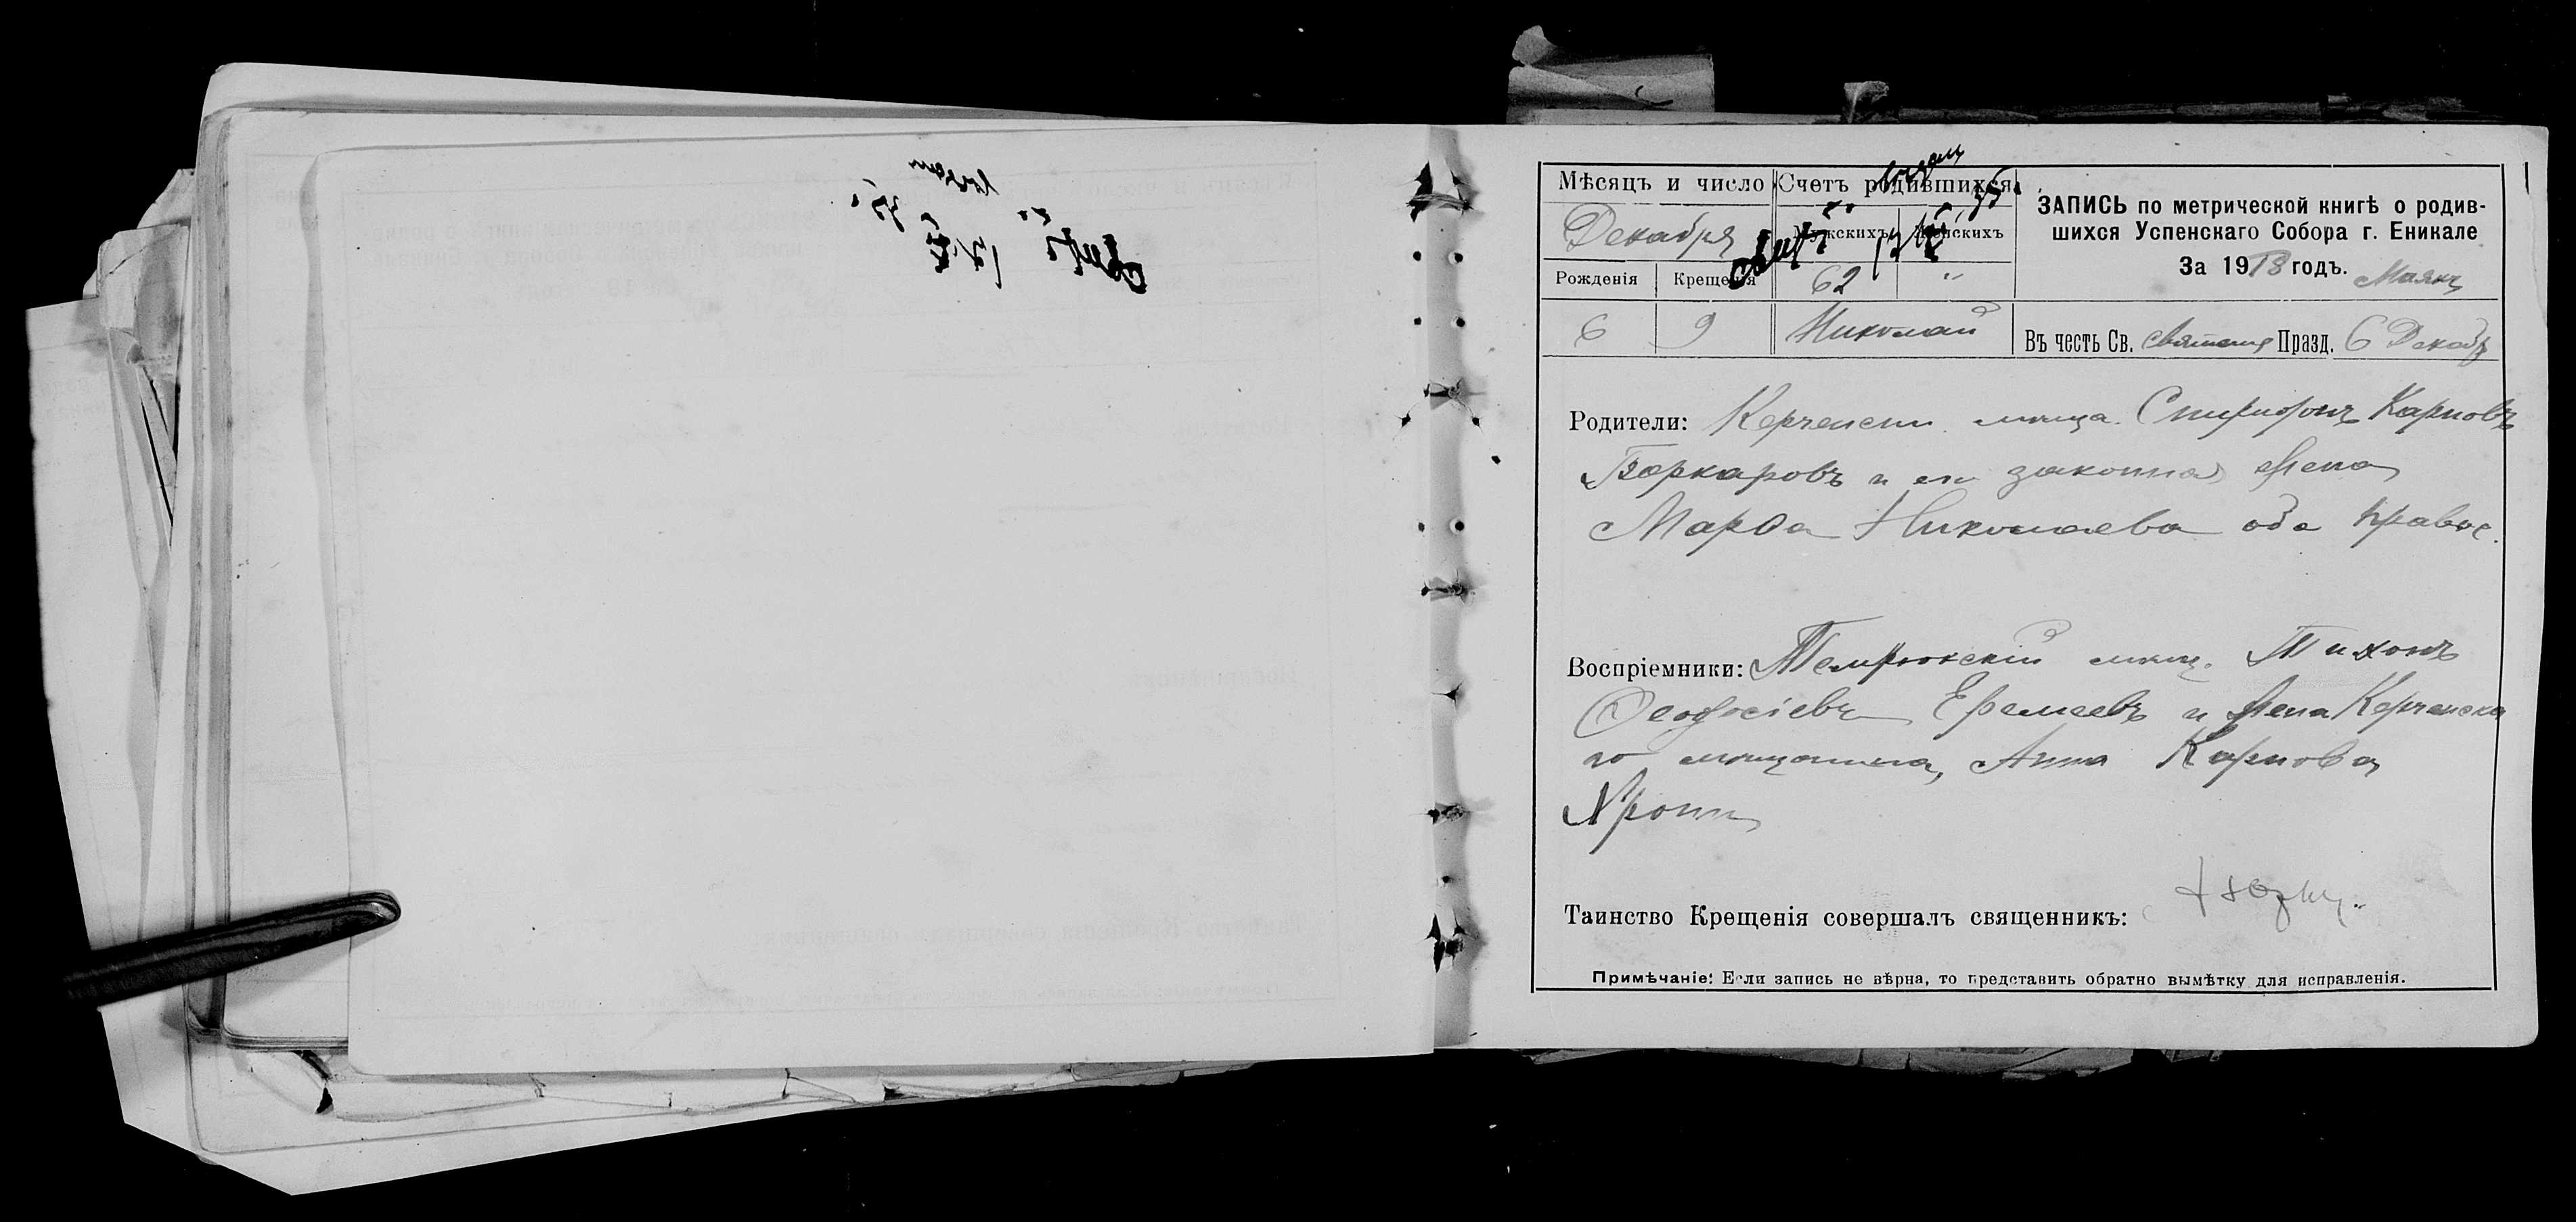 Мѣсяцъ и число
Счетъ родившихся
Декабря
Мужскихъ
Женскихъ
Рожденія
Крещенія
62
"
6
9
Николай
ЗАПИСЬ по метрической книгѣ о родив-
шихся Успенскаго Собора г. Еникале
За 1913 годъ.
Маякъ
Въ честь Св. Празд. 6 Декабр
Родители: Керченскій мѣща. Спиридонъ Карповъ
и его законная жена
Марѳа Николаева оба правос.
Воспріемники: Темрюкскій мѣщ. Тихонъ
Ѳеодосіевъ Ефремеевъ и жена Керченска
го мѣщанина, Анна Карпова
Таинство Крещенія совершалъ священникъ:
Примѣчаніе: Если запись не вѣрна, то представить обратно вымѣтку для исправленія.